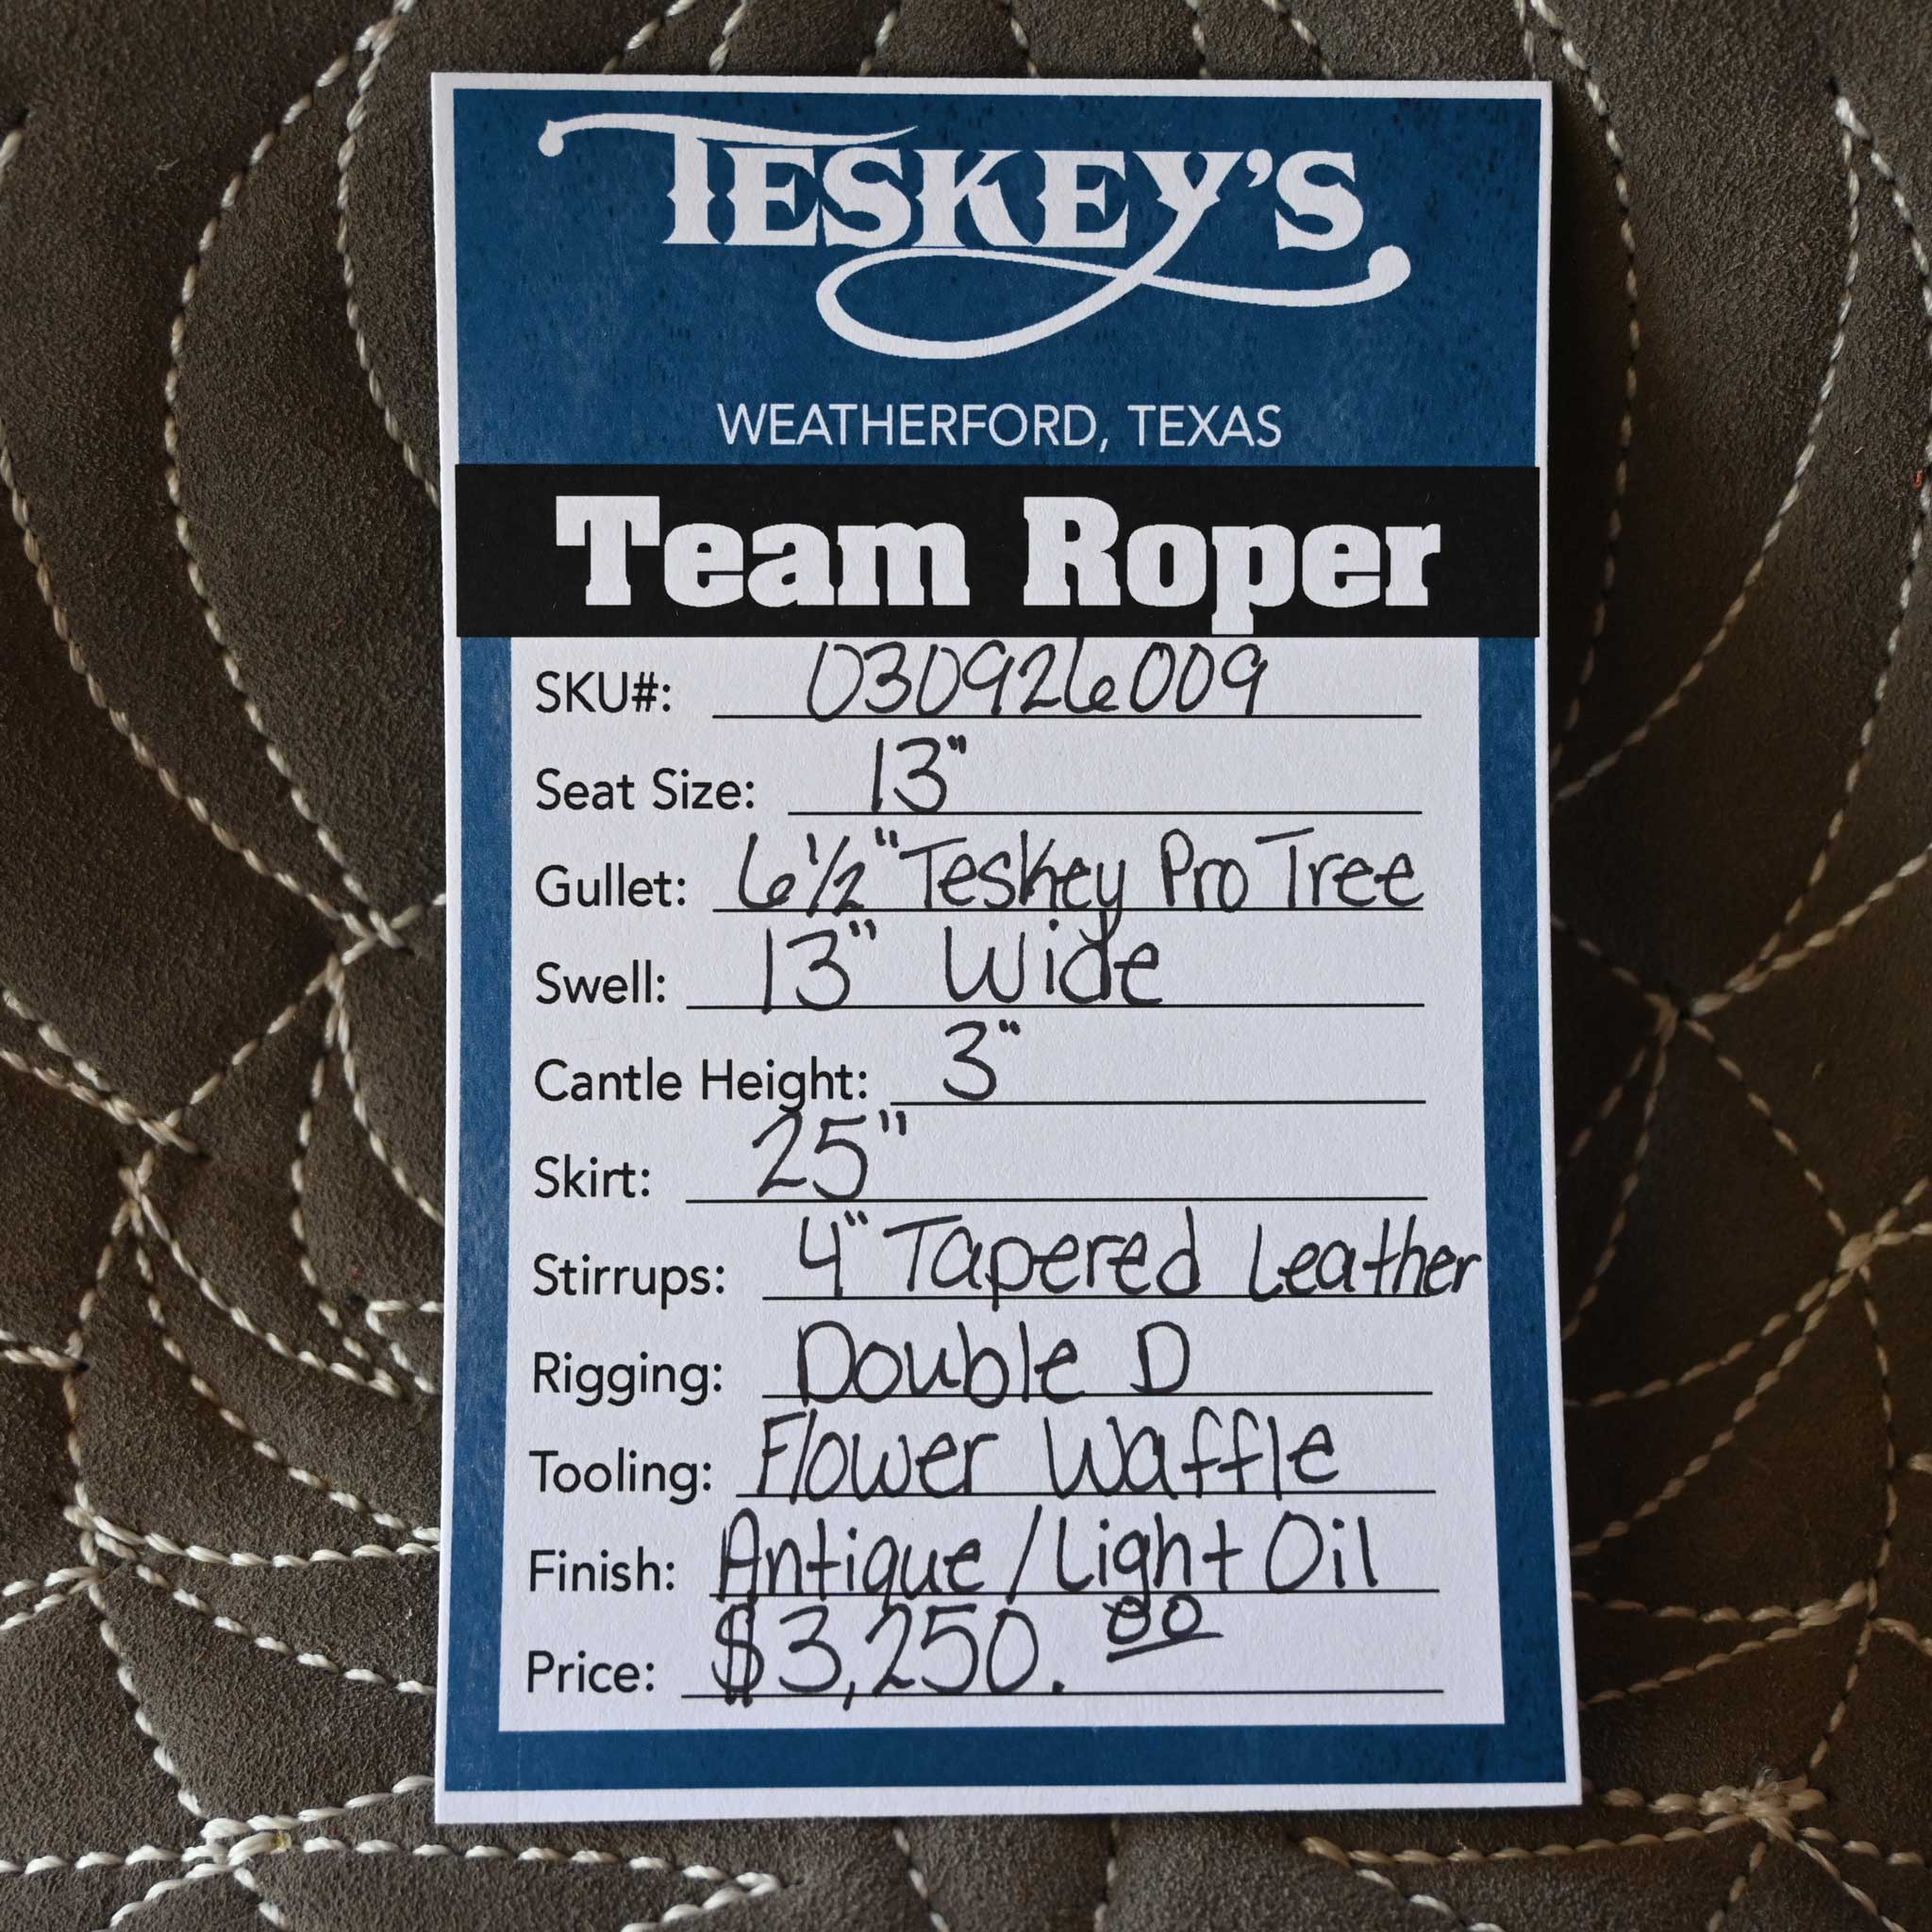 TESKEY'S
WEATHERFORD, TEXAS
Team Roper
SKU#: 030926009
Seat Size: 13"
Gullet: 6 1/2" Teskey Pro Tree
Swell: 13" Wide
Cantle Height: 3"
Skirt: 25"
Stirrups: 4" Tapered Leather
Rigging: Double D
Tooling: Flower Waffle
Finish: Antique / Light Oil
Price: $3,250.00